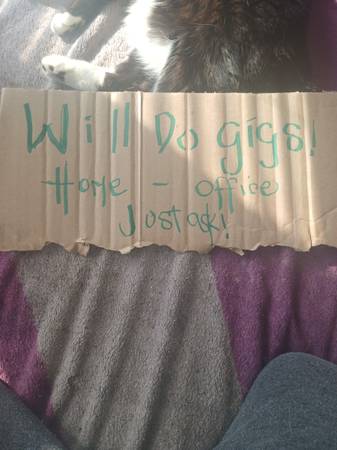 Will Do gigs!
Home - office
Jost ask!